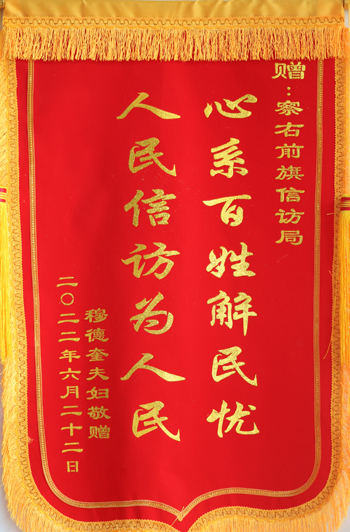 赠：察右前旗信访局
心系百姓解民忧
人民信访为人民
穆德奎夫妇敬赠
二〇二二年六月二十二日